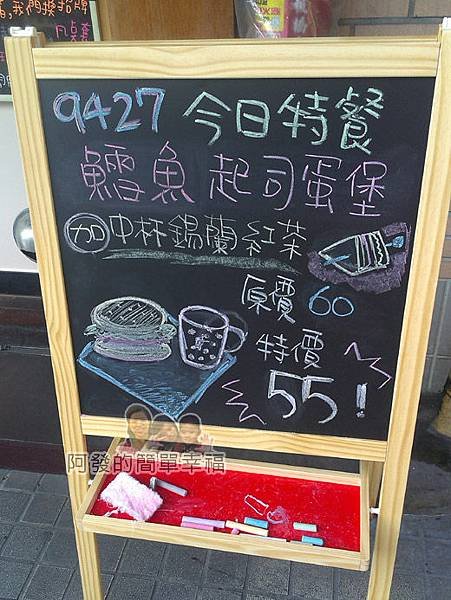 9427 今日特餐
鱈魚起司蛋堡
加中杯錫蘭紅茶
原價 60
特價
55!
阿發的簡單幸福